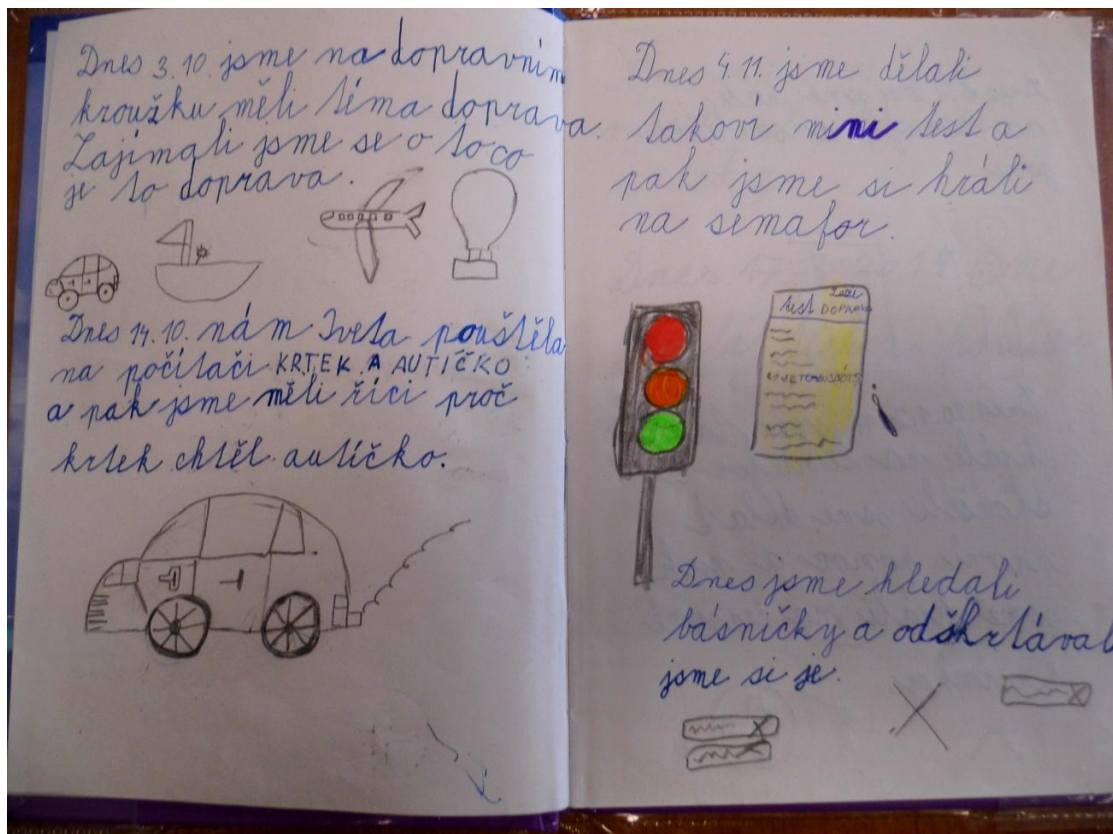 Dnes 3.10. jsme na dopravním
kroužku měli téma doprava.
Zajímali jsme se o to co
je to doprava.
Dnes 14.10. nám Iveta pouštěla
na počítači KRTEK A AUTÍČKO
a pak jsme měli říci proč
krtek chtěl autíčko.
Dnes 4.11. jsme dělali
takoví mini test a
pak jsme si hráli
na semafor.
test DOPRAVA
Dnes jsme hledali
básničky a odškrtával
jsme si je.